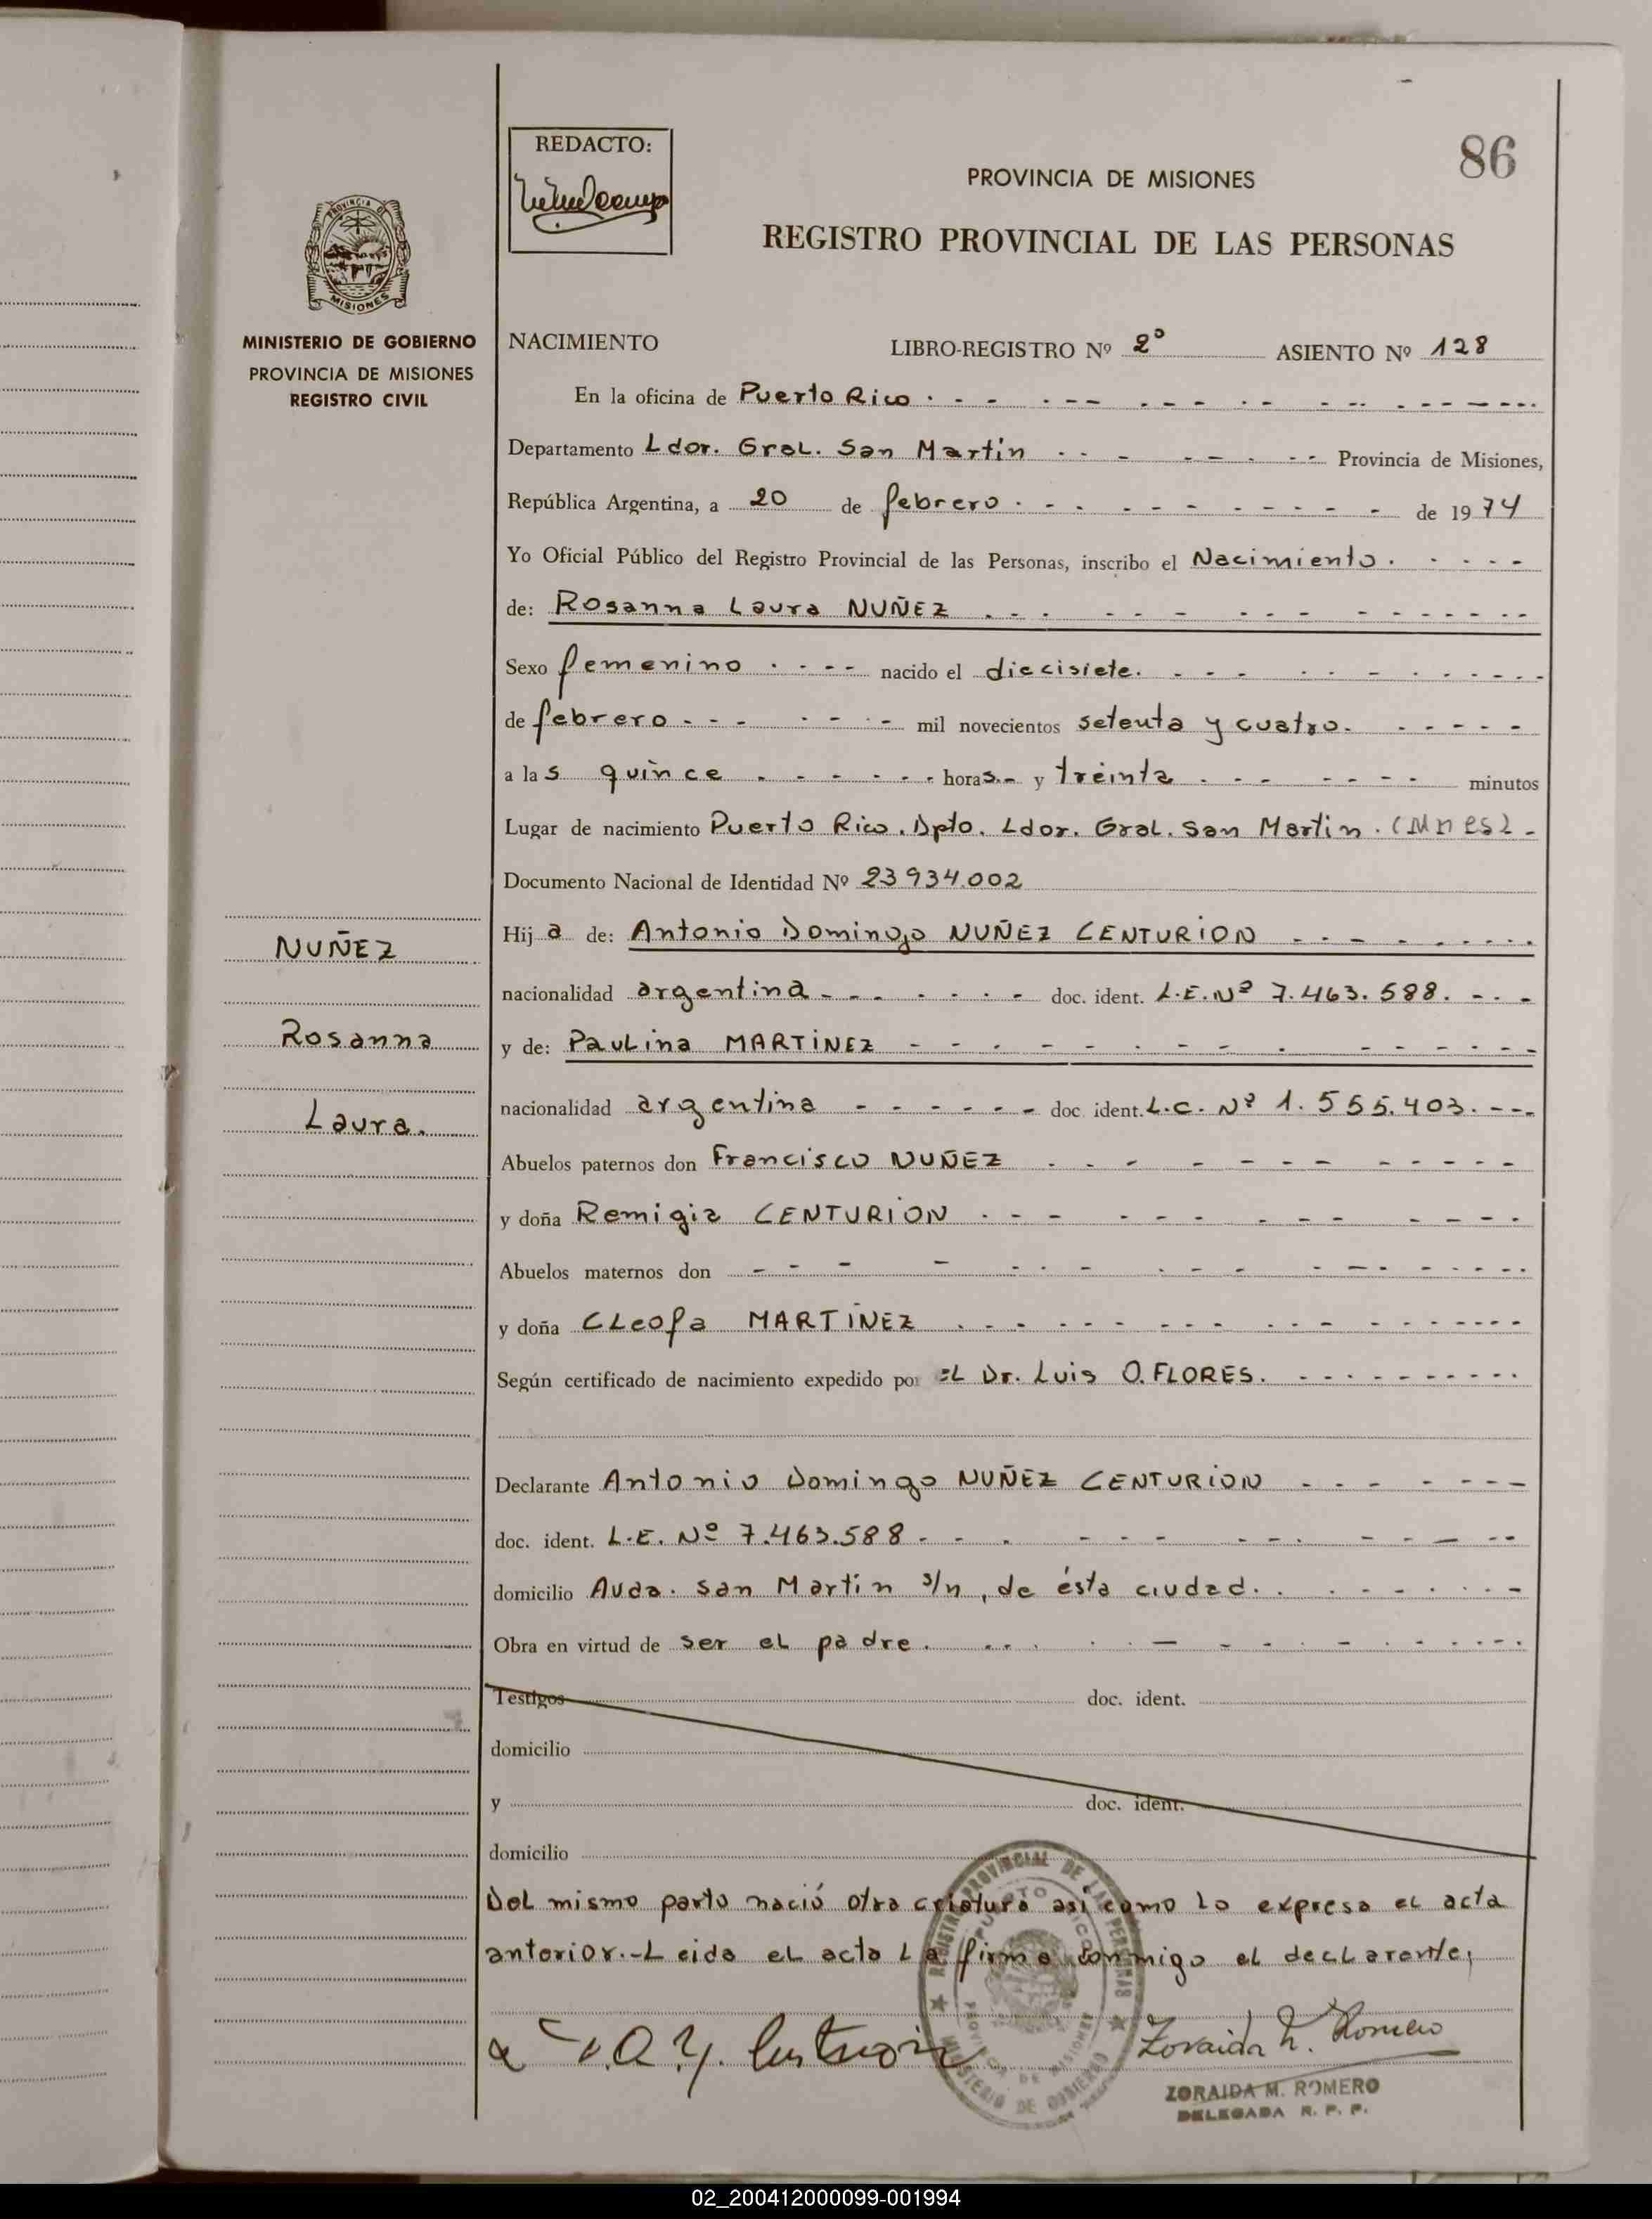 REDACTO:
86
PROVINCIA DE MISIONES
REGISTRO PROVINCIAL DE LAS PERSONAS
PROVINCIA DE
MISIONES
MINISTERIO DE GOBIERNO
PROVINCIA DE MISIONES
REGISTRO CIVIL
NACIMIENTO LIBRO-REGISTRO Nº 2º ASIENTO Nº 128
En la oficina de Puerto Rico
Departamento Ldor. Gral. San Martín Provincia de Misiones,
República Argentina, a 20 de febrero de 1974
Yo Oficial Público del Registro Provincial de las Personas, inscribo el Nacimiento
de: Rosanna Laura NUÑEZ
Sexo femenino nacido el diecisiete
de febrero mil novecientos setenta y cuatro
a las quince horas y treinta minutos
Lugar de nacimiento Puerto Rico. Dpto. Ldor. Gral. San Martín. (Mnes).
Documento Nacional de Identidad Nº 23934.002
NUÑEZ
Rosanna
Laura.
Hija de: Antonio Domingo NUÑEZ CENTURION
nacionalidad argentina doc. ident. L.E. Nº 7.463.588.
y de: Paulina MARTINEZ
nacionalidad argentina doc. ident. L.C. Nº 1.555.403.
Abuelos paternos don Francisco NUÑEZ
y doña Remigia CENTURION
Abuelos maternos don
y doña Cleofa MARTINEZ
Según certificado de nacimiento expedido por el Dr. Luis O. FLORES.
Declarante Antonio Domingo NUÑEZ CENTURION
doc. ident. L.E. Nº 7.463.588
domicilio Avda. San Martín s/n, de ésta ciudad.
Obra en virtud de ser el padre.
Testigos doc. ident.
domicilio
y doc. ident.
domicilio
Del mismo parto nació otra criatura asi como lo expresa el acta
anterior.-Leida el acta la firma conmigo el declarante,
REGISTRO PROVINCIAL DE LAS PERSONAS
PUERTO RICO
PROVINCIA DE MISIONES
MINISTERIO DE GOBIERNO
Zoraida M. Romero
ZORAIDA M. ROMERO
DELEGADA R. P. P.
02_200412000099-001994